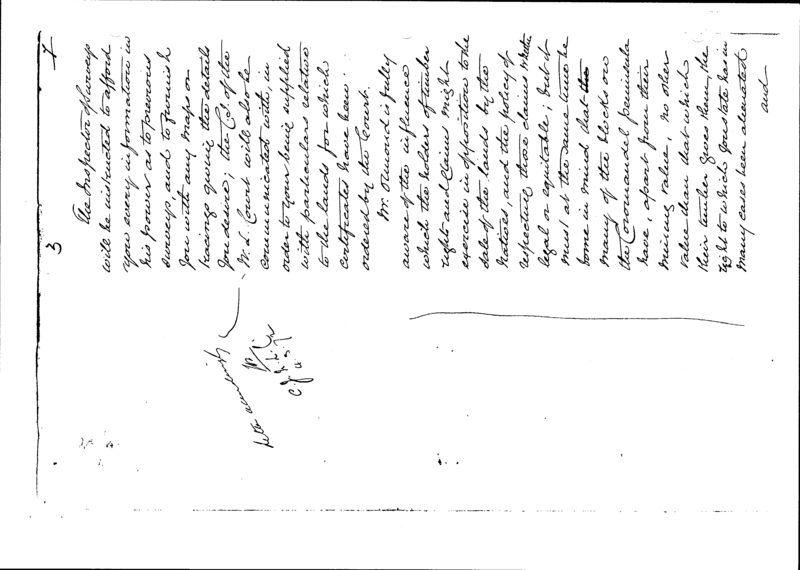 3
The Inspector of Surveys
will be instructed to afford
you every information in
his power as to previous
surveys, and to furnish
you with any maps or
tracings giving the details
you desire; the C.J. of the
N. L. Court will also be
communicated with, in
order to your being supplied
with particulars relative
to the lands for which
certificates have been
ordered by the Court.
Mr. Ormond is fully
aware of the influence
which the holders of timber
right and claims might
exercise in opposition to the
sale of the lands by the
Natives, and the policy of
respecting those claims whether
legal or equitable; but it
must at the same time be
borne in mind that the
many of the blocks on
the Coromandel peninsula
have, apart from their
mining value, no other
value than that which
their timber gives them, the
right to which you state has in
many cases been alienated
and